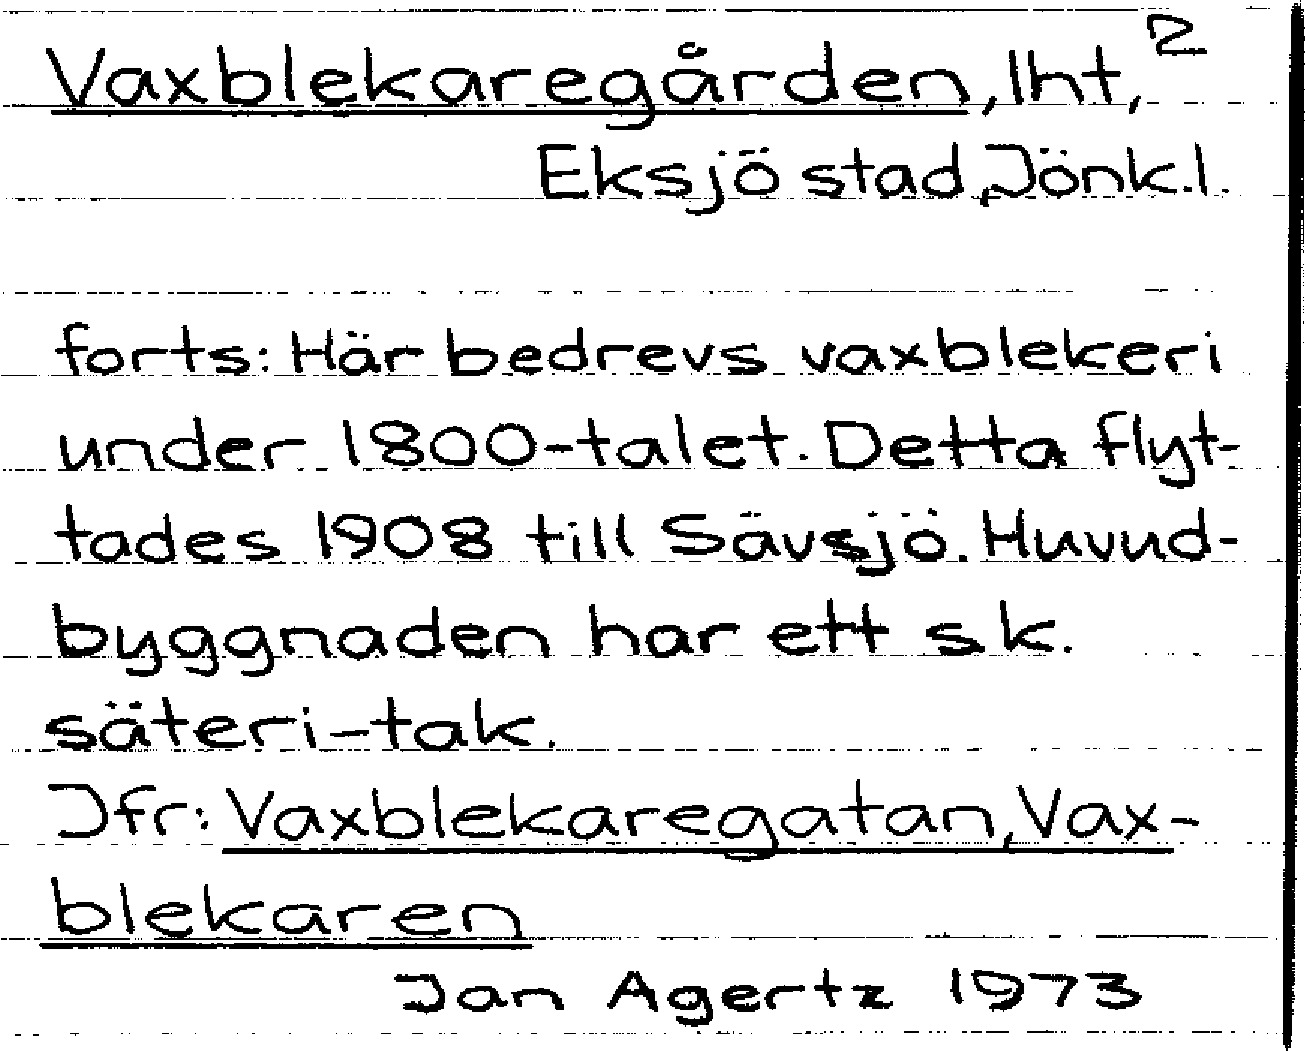 Vaxblekaregården, lht, 2
Eksjö stad, Jönk.l.
forts: Här bedrevs vaxblekeri
under 1800-talet. Detta flyt-
tades 1908 till Sävsjö. Huvud-
byggnaden har ett sk.
säteri-tak.
Jfr: Vaxblekaregatan, Vax-
blekaren
Jan Agertz 1973